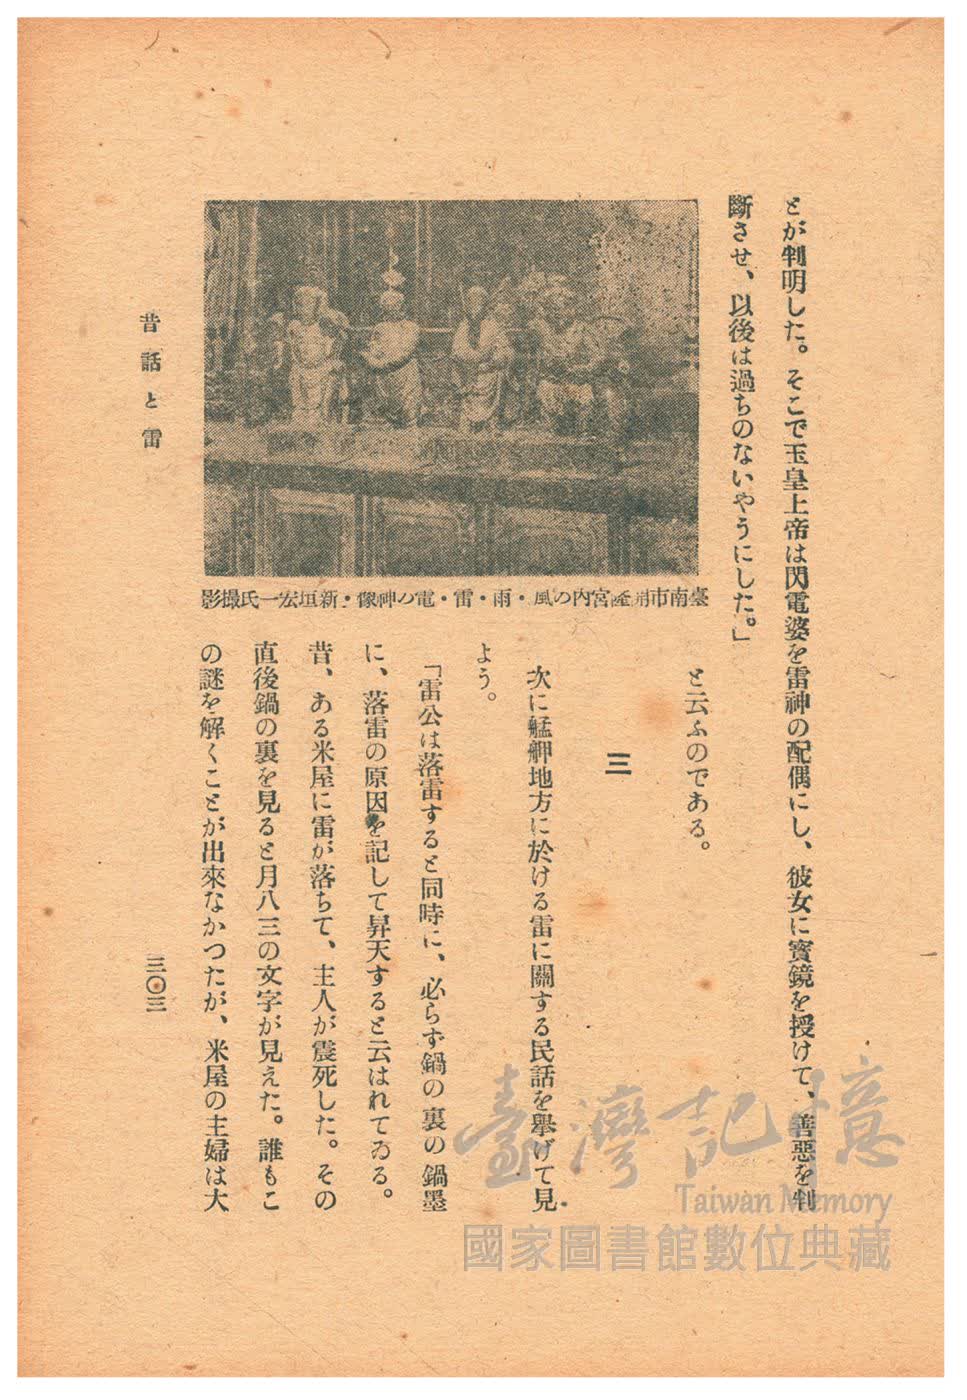 とが判明した。そこで玉皇上帝は閃電婆を雷神の配偶にし、彼女に寳鏡を授けて、善惡を判
斷させ、以後は過ちのないやうにした。」
と云ふのである。
三
次に艋舺地方に於ける雷に關する民話を擧げて見
よう。
「雷公は落雷すると同時に、必らず鍋の裏の鍋墨
に、落雷の原因を記して昇天すると云はれてゐる。
昔、ある米屋に雷が落ちて、主人が震死した。その
直後鍋の裏を見ると月八三の文字が見えた。誰もこ
の謎を解くことが出來なかつたが、米屋の主婦は大
臺南市 宮内の風・雨・雷・電の神像・新垣宏一氏撮影
昔話と雷
三〇三
臺灣記憶
Taiwan Memory
國家圖書館數位典藏